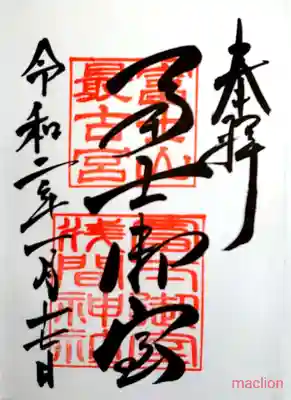 奉拝
富士山
最古宮
冨士御室
冨士御室
浅間神社
令和二年一月十七日
maclion